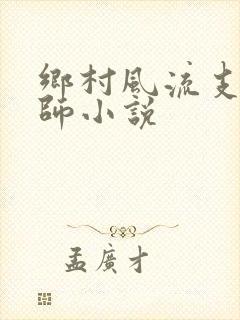 鄉村風流支
師小說
孟廣才